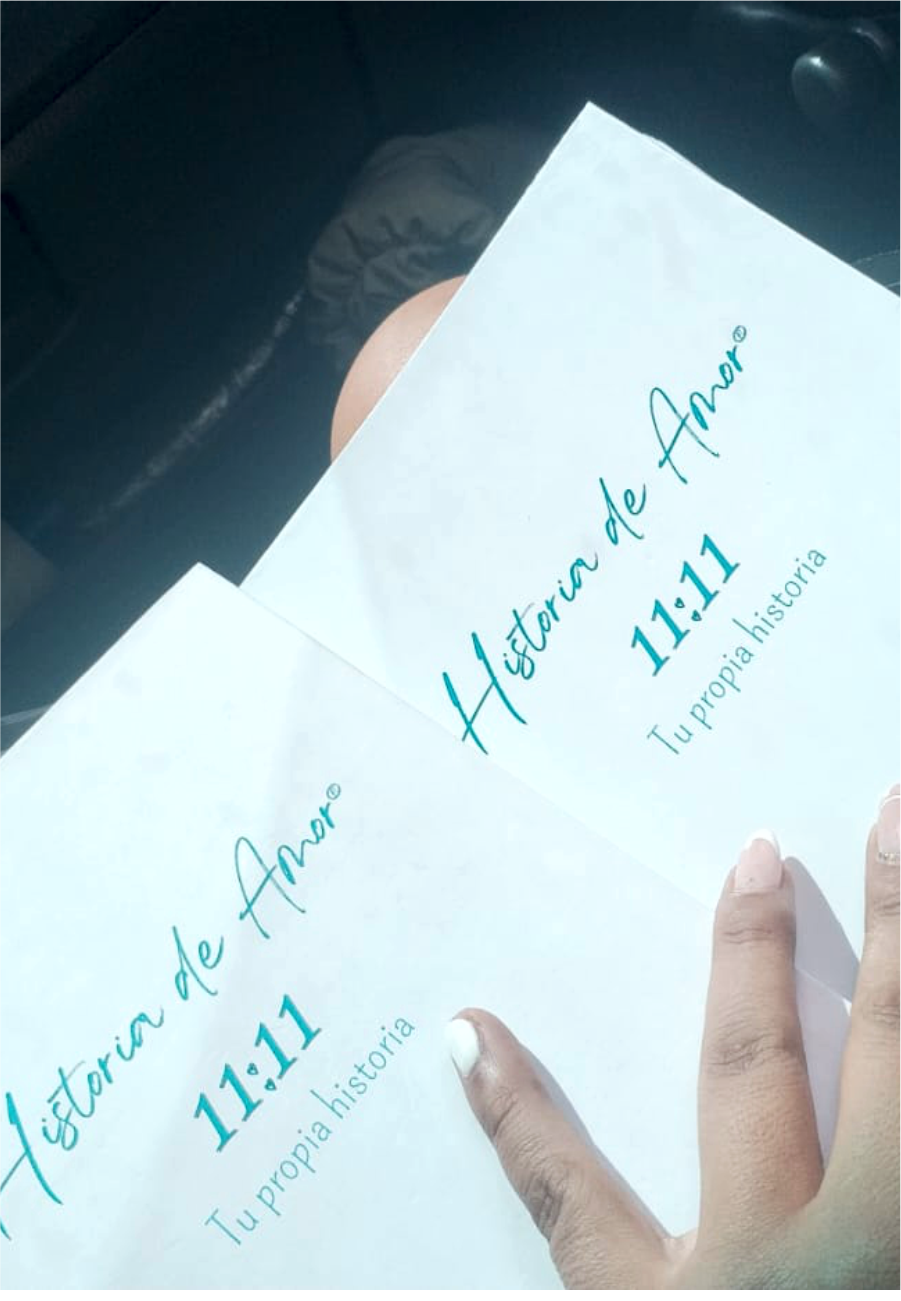 Historia de Amor®
11:11
Tu propia historia
Historia de Amor®
11:11
Tu propia historia